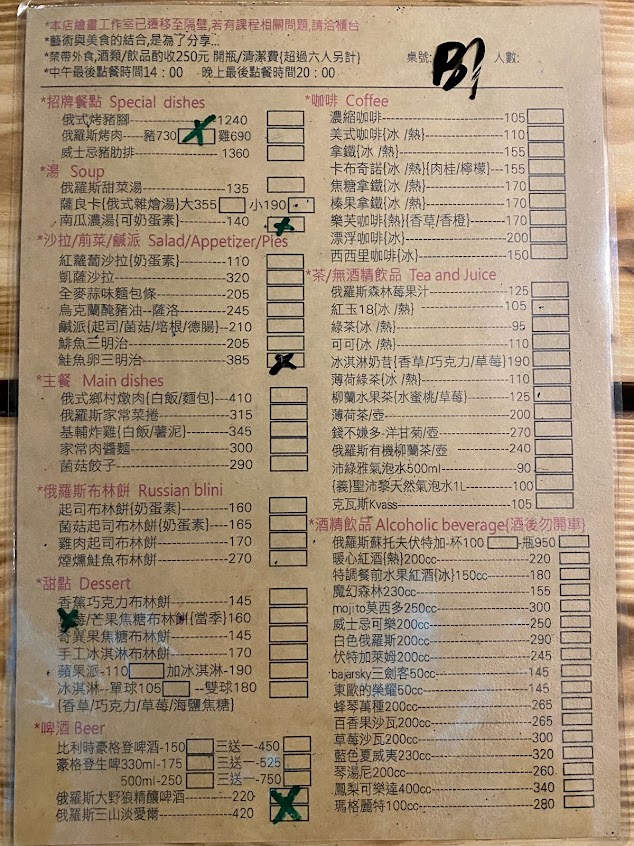 *本店繪畫工作室已遷移至隔壁,若有課程相關問題,請洽櫃台
*藝術與美食的結合,是為了分享...
*禁帶外食,酒類/飲品酌收250元 開瓶/清潔費{超過六人另計}
*中午最後點餐時間14：00 晚上最後點餐時間20：00
桌號: 人數:
*招牌餐點 Special dishes
俄式烤豬腳----------------1240
俄羅斯烤肉----豬730 雞690
威士忌豬肋排-------------- 1360
*湯 Soup
俄羅斯甜菜湯--------------135
薩良卡{俄式雜燴湯}大355 小190
南瓜濃湯{可奶蛋素}--------140
*沙拉/前菜/鹹派 Salad/Appetizer/Pies
紅蘿蔔沙拉{奶蛋素}--------110
凱薩沙拉------------------320
全麥蒜味麵包條------------205
烏克蘭醃豬油--薩洛--------245
鹹派{起司/菌菇/培根/德腸}--210
鯡魚三明治----------------205
鮭魚卵三明治--------------385
*主餐 Main dishes
俄式鄉村燉肉{白飯/麵包}---410
俄羅斯家常菜捲------------315
基輔炸雞{白飯/薯泥}-------345
家常肉醬麵----------------300
菌菇餃子------------------290
*俄羅斯布林餅 Russian blini
起司布林餅{奶蛋素}--------160
菌菇起司布林餅{奶蛋素}----165
雞肉起司布林餅------------170
煙燻鮭魚布林餅------------270
*甜點 Dessert
香蕉巧克力布林餅----------145
莓/芒果焦糖布林餅{當季}160
奇異果焦糖布林餅----------145
手工冰淇淋布林餅----------170
蘋果派-110 加冰淇淋-190
冰淇淋--單球105 --雙球180
{香草/巧克力/草莓/海鹽焦糖}
*啤酒 Beer
比利時豪格登啤酒-150 三送一-450
豪格登生啤330ml-175 三送一-525
500ml-250 三送一-750
俄羅斯大野狼精釀啤酒-------220
俄羅斯三山淡愛爾-----------420
*咖啡 Coffee
濃縮咖啡-------------------105
美式咖啡{冰 /熱}-----------110
拿鐵{冰 /熱}---------------155
卡布奇諾{冰 /熱}{肉桂/檸檬}---155
焦糖拿鐵{冰 /熱}-----------170
榛果拿鐵{冰 /熱}-----------170
樂芙咖啡{熱}{香草/香橙}----170
漂浮咖啡{冰}---------------200
西西里咖啡{冰}-------------150
*茶/無酒精飲品 Tea and Juice
俄羅斯森林莓果汁-----------125
紅玉18{冰 /熱}-------------105
綠茶{冰 /熱}---------------95
可可{冰 /熱}---------------110
冰淇淋奶昔{香草/巧克力/草莓}190
薄荷綠茶{冰 /熱}-----------110
柳蘭水果茶{水蜜桃/草莓}----125
薄荷茶/壺------------------200
錢不嫌多-洋甘菊/壺---------270
俄羅斯有機柳蘭茶/壺--------240
沛綠雅氣泡水500ml----------90
{義}聖沛黎天然氣泡水1L-----100
克瓦斯Kvass----------------105
*酒精飲品 Alcoholic beverage{酒後勿開車}
俄羅斯蘇托夫伏特加-杯100 -瓶950
暖心紅酒{熱}200cc----------220
特調餐前水果紅酒{冰}150cc--180
魔幻森林230cc--------------155
mojito莫西多250cc----------300
威士忌可樂200cc------------250
白色俄羅斯200cc------------290
伏特加萊姆200cc------------245
bajarsky三劍客50cc---------145
東歐的榮耀50cc-------------145
蜂琴萬種200cc--------------265
百香果沙瓦200cc------------265
草莓沙瓦200cc--------------300
藍色夏威夷230cc------------320
琴湯尼200cc----------------260
鳳梨可樂達400cc------------340
瑪格麗特100cc--------------280